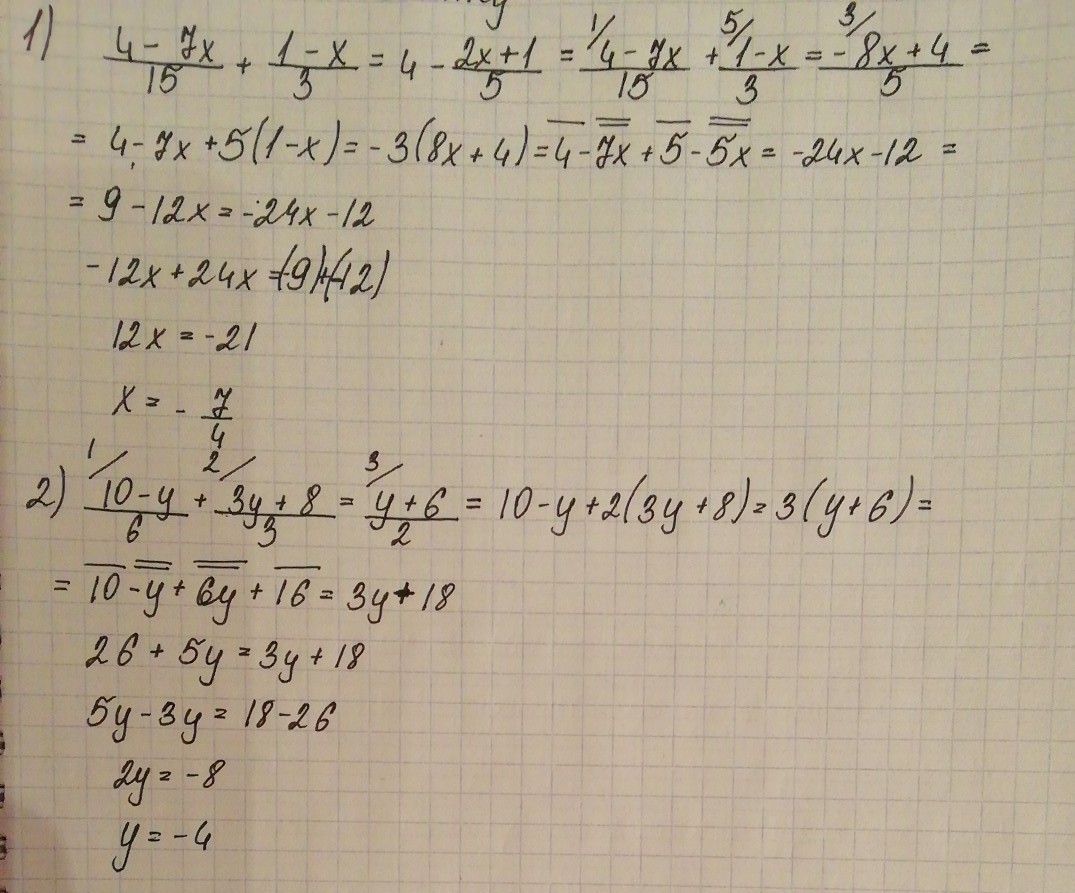 1) (4-7x)/15 + (1-x)/3 = 4 - (2x+1)/5 = ¹/(4-7x)/15 + ⁵/(1-x)/3 = ³/(-8x+4)/5 =
= 4-7x+5(1-x)=-3(8x+4)=4-7x+5-5x=-24x-12=
= 9-12x=-24x-12
-12x+24x=(-9)+(-12)
12x=-21
x=-7/4
2) ¹/(10-y)/6 + ²/(3y+8)/3 = ³/(y+6)/2 = 10-y+2(3y+8)=3(y+6)=
= 10-y+6y+16=3y+18
26+5y=3y+18
5y-3y=18-26
2y=-8
y=-4